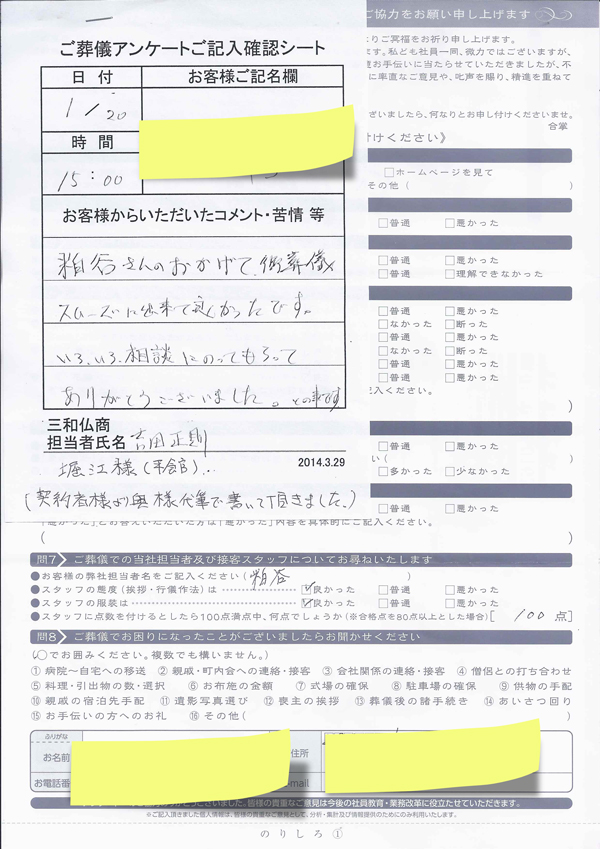 ご協力をお願い申し上げます
りご冥福をお祈り申し上げます。
ます。私ども社員一同、微力ではございますが、
お手伝いに当たらせていただきましたが、不
に率直なご意見や、叱声を賜り、精進を重ねて
ございましたら、何なりとお申し付けくださいませ。
合掌
付けください》
□ホームページを見て
その他（ ）
□普通 □悪かった
□普通 □悪かった
□普通 □理解できなかった
□普通 □悪かった
□なかった □断った
□普通 □悪かった
□なかった □断った
□普通 □悪かった
□普通 □悪かった
記入ください。
）
□普通 □悪かった
い（ ）
□多かった □少なかった
□普通 □悪かった
ご葬儀アンケートご記入確認シート
日 付 お客様ご記名欄
1/20
時 間
15：00
お客様からいただいたコメント・苦情 等
粕谷さんのおかげで、御葬儀
スムーズに出来て良かったです。
いろいろ相談にのってもらって
ありがとうございました。
三和仏商
担当者氏名 吉田正則
2014.3.29
堀江様
(契約者様が奥様代筆で書いて頂きました。)
「悪かった」とお答えいただいた方は「悪かった」内容を具体的にご記入ください。
（ ）
問7 ご葬儀での当社担当者及び接客スタッフについてお尋ねいたします
●お客様の弊社担当者名をご記入ください（ 粕谷 ）
●スタッフの態度（挨拶・行儀作法）は ☑良かった □普通 □悪かった
●スタッフの服装は ☑良かった □普通 □悪かった
●スタッフに点数を付けるとしたら100点満点中、何点でしょうか（※合格点を80点以上とした場合）[ 100 点]
問8 ご葬儀でお困りになったことがございましたらお聞かせください
（○でお囲みください。複数でも構いません。）
①病院～自宅への移送 ②親戚・町内会への連絡・接客 ③会社関係の連絡・接客 ④僧侶との打ち合わせ
⑤料理・引出物の数・選択 ⑥お布施の金額 ⑦式場の確保 ⑧駐車場の確保 ⑨供物の手配
⑩親戚の宿泊先手配 ⑪遺影写真選び ⑫喪主の挨拶 ⑬葬儀後の諸手続き ⑭あいさつ回り
⑮お手伝いの方へのお礼 ⑯その他（ ）
ふりがな
お名前 住所
お電話番 mail
ございました。皆様の貴重なご意見は今後の社員教育・業務改革に役立たせていただきます。
※ご記入頂きました個人情報は、皆様の貴重なご意見として、分析・集計及び情報提供のためにのみ利用いたします。
のりしろ①